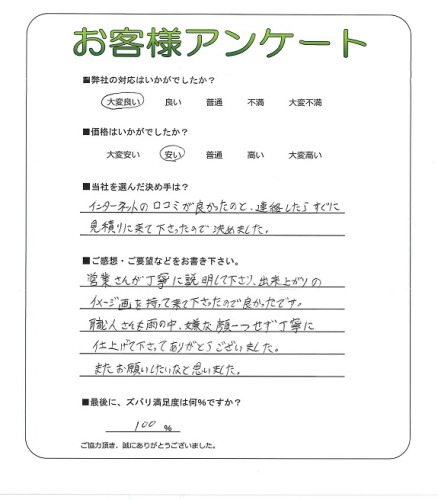 お客様アンケート
■弊社の対応はいかがでしたか？
大変良い 良い 普通 不満 大変不満
■価格はいかがでしたか？
大変安い 安い 普通 高い 大変高い
■当社を選んだ決め手は？
インターネットの口コミが良かったのと、連絡したらすぐに
見積りに来て下さったので決めました。
■ご感想・ご要望などをお書き下さい。
営業さんが丁寧に説明して下さり、出来上がりの
イメージ画を持って来て下さったので良かったです。
職人さんも雨の中、嫌な顔一つせず丁寧に
仕上げて下さってありがとうございました。
またお願いしたいなと思いました。
■最後に、ズバリ満足度は何％ですか？
100 ％
ご協力頂き、誠にありがとうございました。